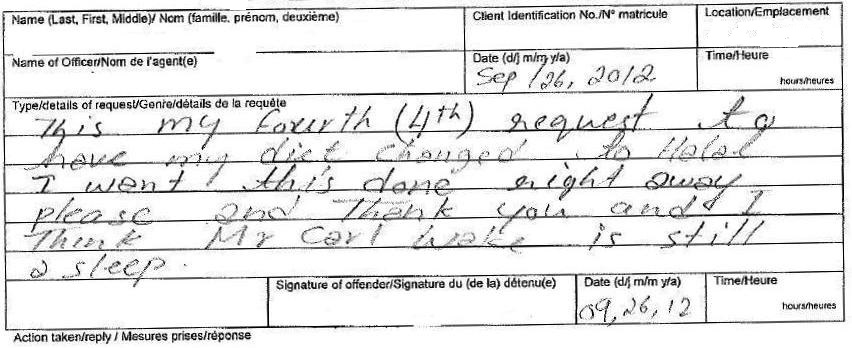 Name (Last, First, Middle)/ Nom (famille. prénom, deuxième)
Client Identification No./N° matricule
Location/Emplacement
Name of Officer/Nom de l'agent(e)
Date (d/j m/m y/a)
Sep /26, 2012
Time/Heure
hours/heures
Type/details of request/Genre/détails de la requête
This my fourth (4th) request to
have my diet changed to Halal
I want this done right away
please and Thank you and I
Think Mr Carl Wake is still
a sleep.
Signature of offender/Signature du (de la) détenu(e)
Date (d/j m/m y/a)
09, 26, 12
Time/Heure
hours/heures
Action taken/reply / Mesures prises/réponse